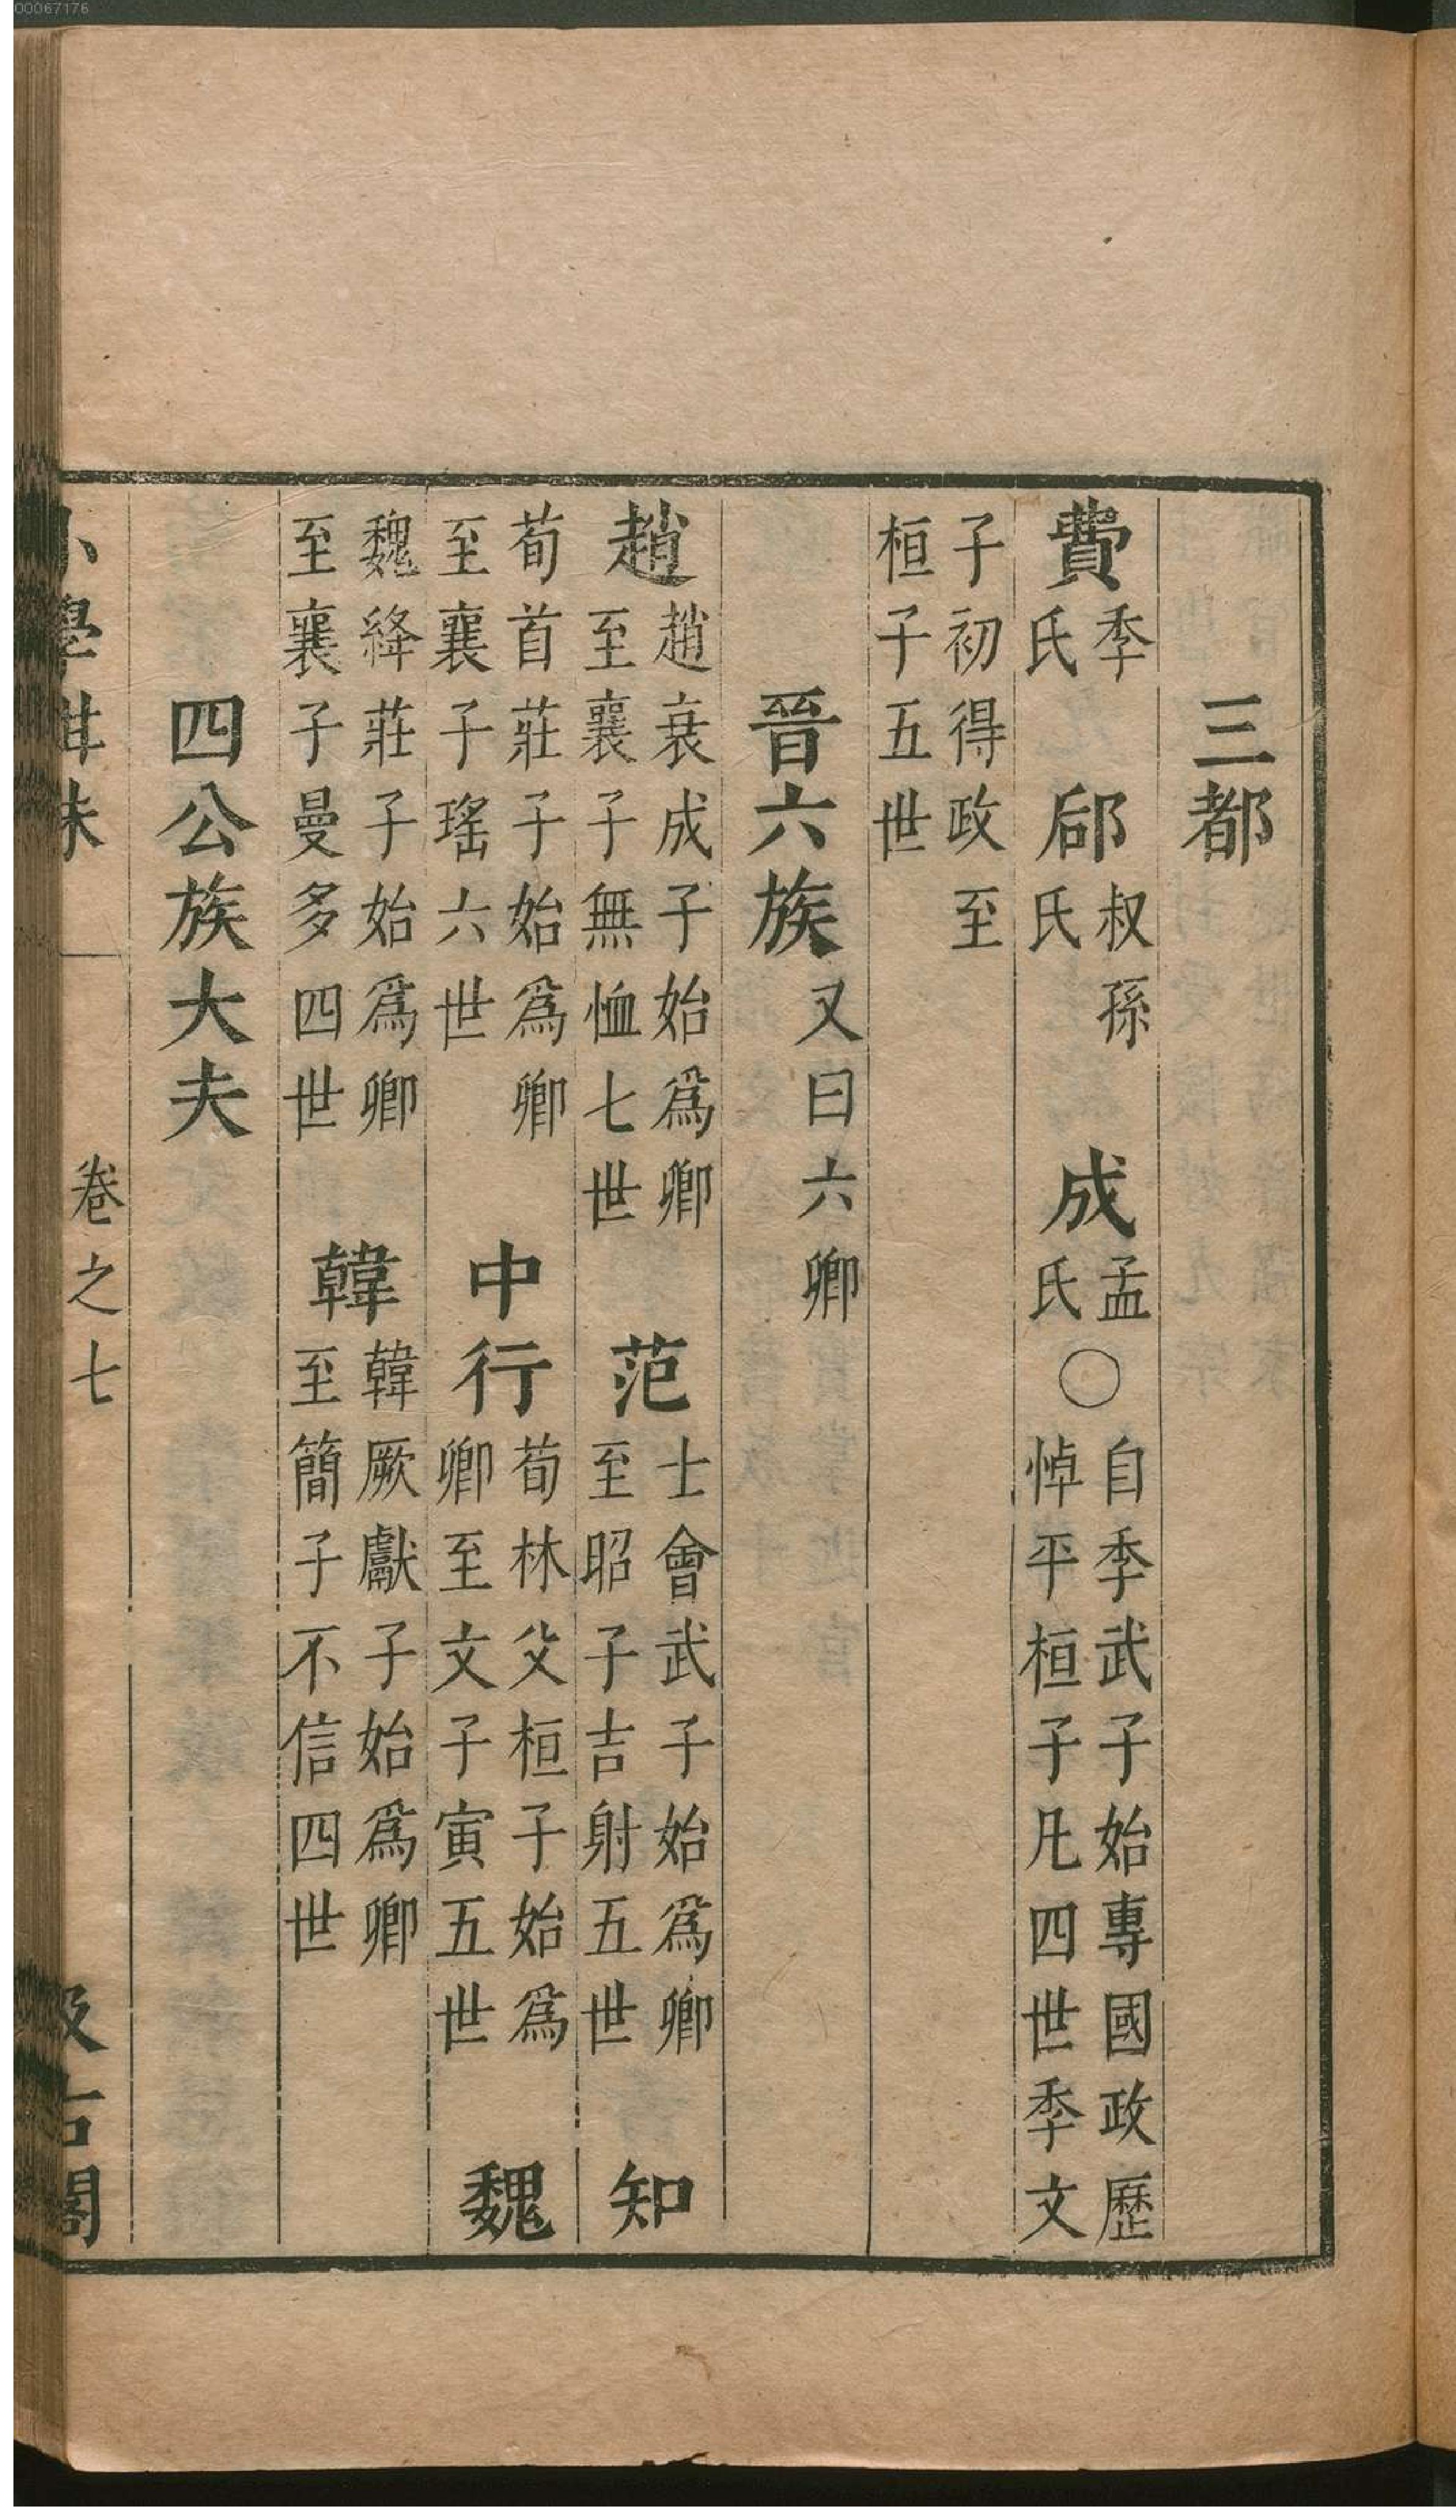 00067176
三都
費季氏　郈叔孫氏　成孟氏○自季武子始專國政歷悼平桓子凡四世季文
子初得政至桓子五世
晉六族又曰六卿
趙趙衰成子始爲卿至襄子無恤七世　范士會武子始爲卿至昭子吉射五世　知
荀首莊子始爲卿至襄子瑤六世　中行荀林父桓子始爲卿至文子寅五世　魏
魏絳莊子始爲卿至襄子曼多四世　韓韓厥獻子始爲卿至簡子不信四世
四公族大夫
小學紺珠　卷之七　汲古閣